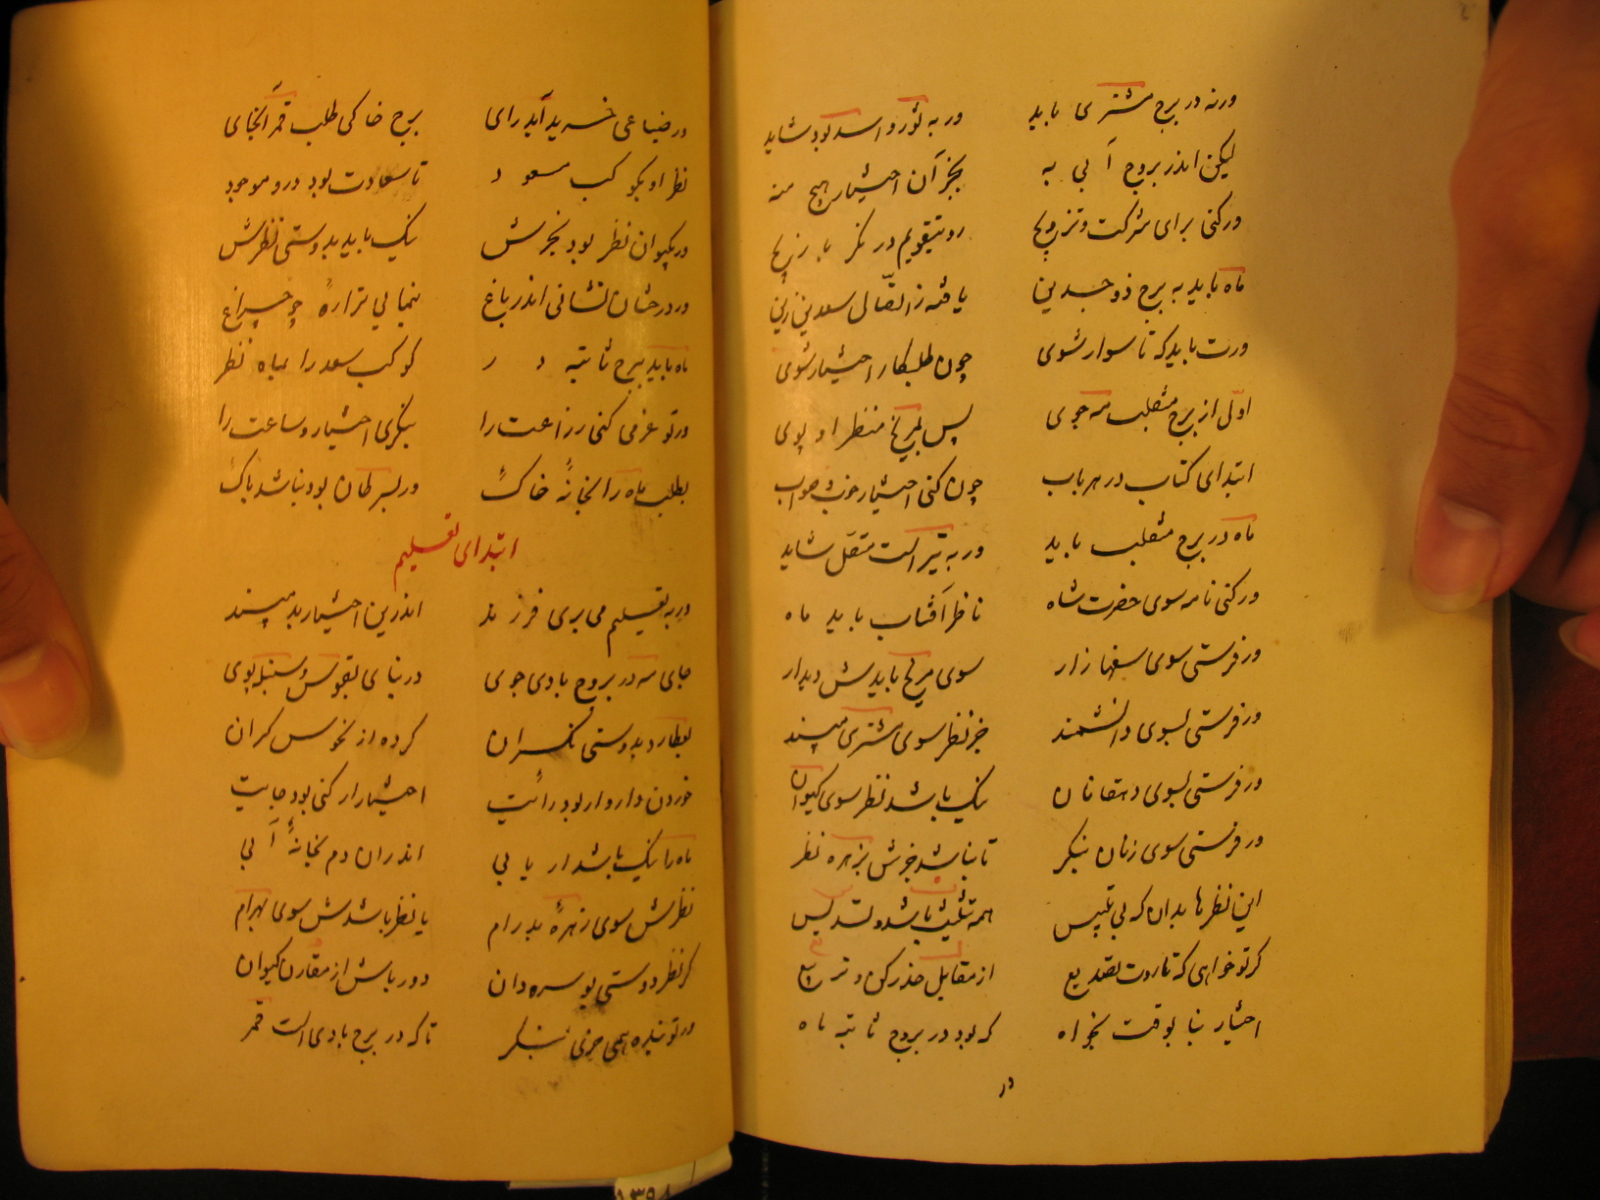 ورنه در برج مشتری باید ور به ثور و اسد بود شاید
لیکن اندر بروج آبی به بجز آن اختیار هیچ منه
ور کنی برای شرکت و تزویج رو بتقویم در نگر بازیج
ماه باید به برج ذوجسدین یافته ز اتصال سعدین زین
ورت باید که تا سوار شوی چون طلبکار اختیار شوی
اول از برج منقلب مه جوی پس بمریخ منظر او پوی
ابتدای کتاب در هر باب چون کنی اختیار خوب و صواب
ماه در برج منقلب باید ور به تیر است متصل شاید
ور کنی نامه سوی حضرت شاه ناظر آفتاب باید ماه
ور فرستی سوی سفها زار سوی مریخ بایدش دیدار
ور فرستی بسوی دانشمند جز نظر سوی مشتری مپسند
ور فرستی بسوی دهقانان نیک باشد نظر سوی کیوان
ور فرستی سوی زنان بنگر تا نباشد جزش بزهره نظر
این نظرها بدان که بی تلبیس همه تثلیث باشد و تسدیس
گر تو خواهی که نارد تصدیع از مقابل حذر کن و تربیع
اختیار بنا بوقت بخواه که بود در بروج ثابته ماه
در
در ضیاعی خرید آید رای برج خاکی طلب قمر آنجای
نظر او بکوکب مسعود تا سعادت بود درو موجود
ور بکیوان نظر بود بخرش نیک باید بدوستی نظرش
ور درختان نشانی اندر باغ بنمایی ترا ره چو چراغ
ماه باید ببرج ثابته در کوکب سعد را بماه نظر
ور تو عزمی کنی زراعت را بنگری اختیار و ساعت را
بطلب ماه را بخانهٔ خاک ور بسرطان بود نباشد باک
ابتدای تعلیم
ور به تعلیم می بری فرزند اندرین اختیار بد مپسند
جای مه در بروج بادی جوی ور نیابی بقوس و سنبل پوی
بعطارد بدوستی نگران کرده از نحوس کران
خوردن دارو ار بود رائیت اختیار ار کنی بود جایت
ماه را نیک باشد ار یابی اندران دم بخانهٔ آبی
نظرش سوی زهرهٔ بدرام یا نظر باشدش سوی بهرام
گر نظر دوستی بو سره دان دور باش از مقارن کیوان
ور تو بنده همی خری بنگر تا که در برج بادی است قمر